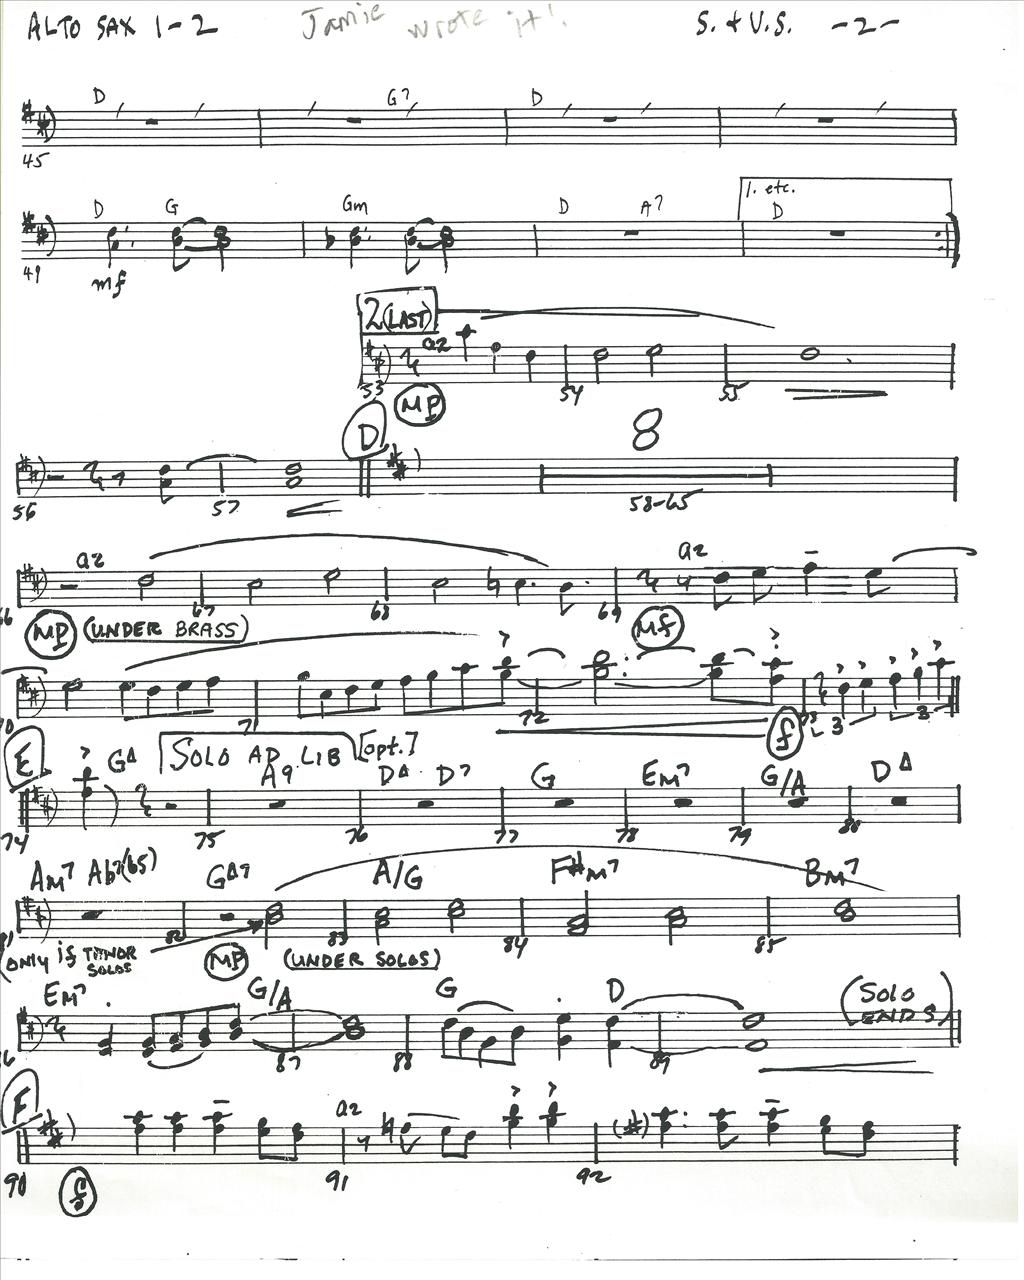 ALTO SAX 1-2 Jamie wrote it! S. + V.S. -2-
D G7 D
45
D G Gm D A7 1. etc. D
49
mf
2 (LAST)
a2
53 54 55
MP
D 8
56 57 58-65
a2 a2
66 67 68 69
MP (UNDER BRASS) Mf
70 71 72 73 3 3
f
E G△ SOLO AD LIB [opt.]
A9 D△ D7 G Em7 G/A D△
74 75 76 77 78 79 80
Am7 Ab7(b5) G△9 A/G F#m7 Bm7
81 82 83 84 85
(ONLY if TENOR SOLOS MP (UNDER SOLOS)
Em7 G/A G D (SOLO ENDS)
86 87 88 89
F a2 (#)
90 91 92
f